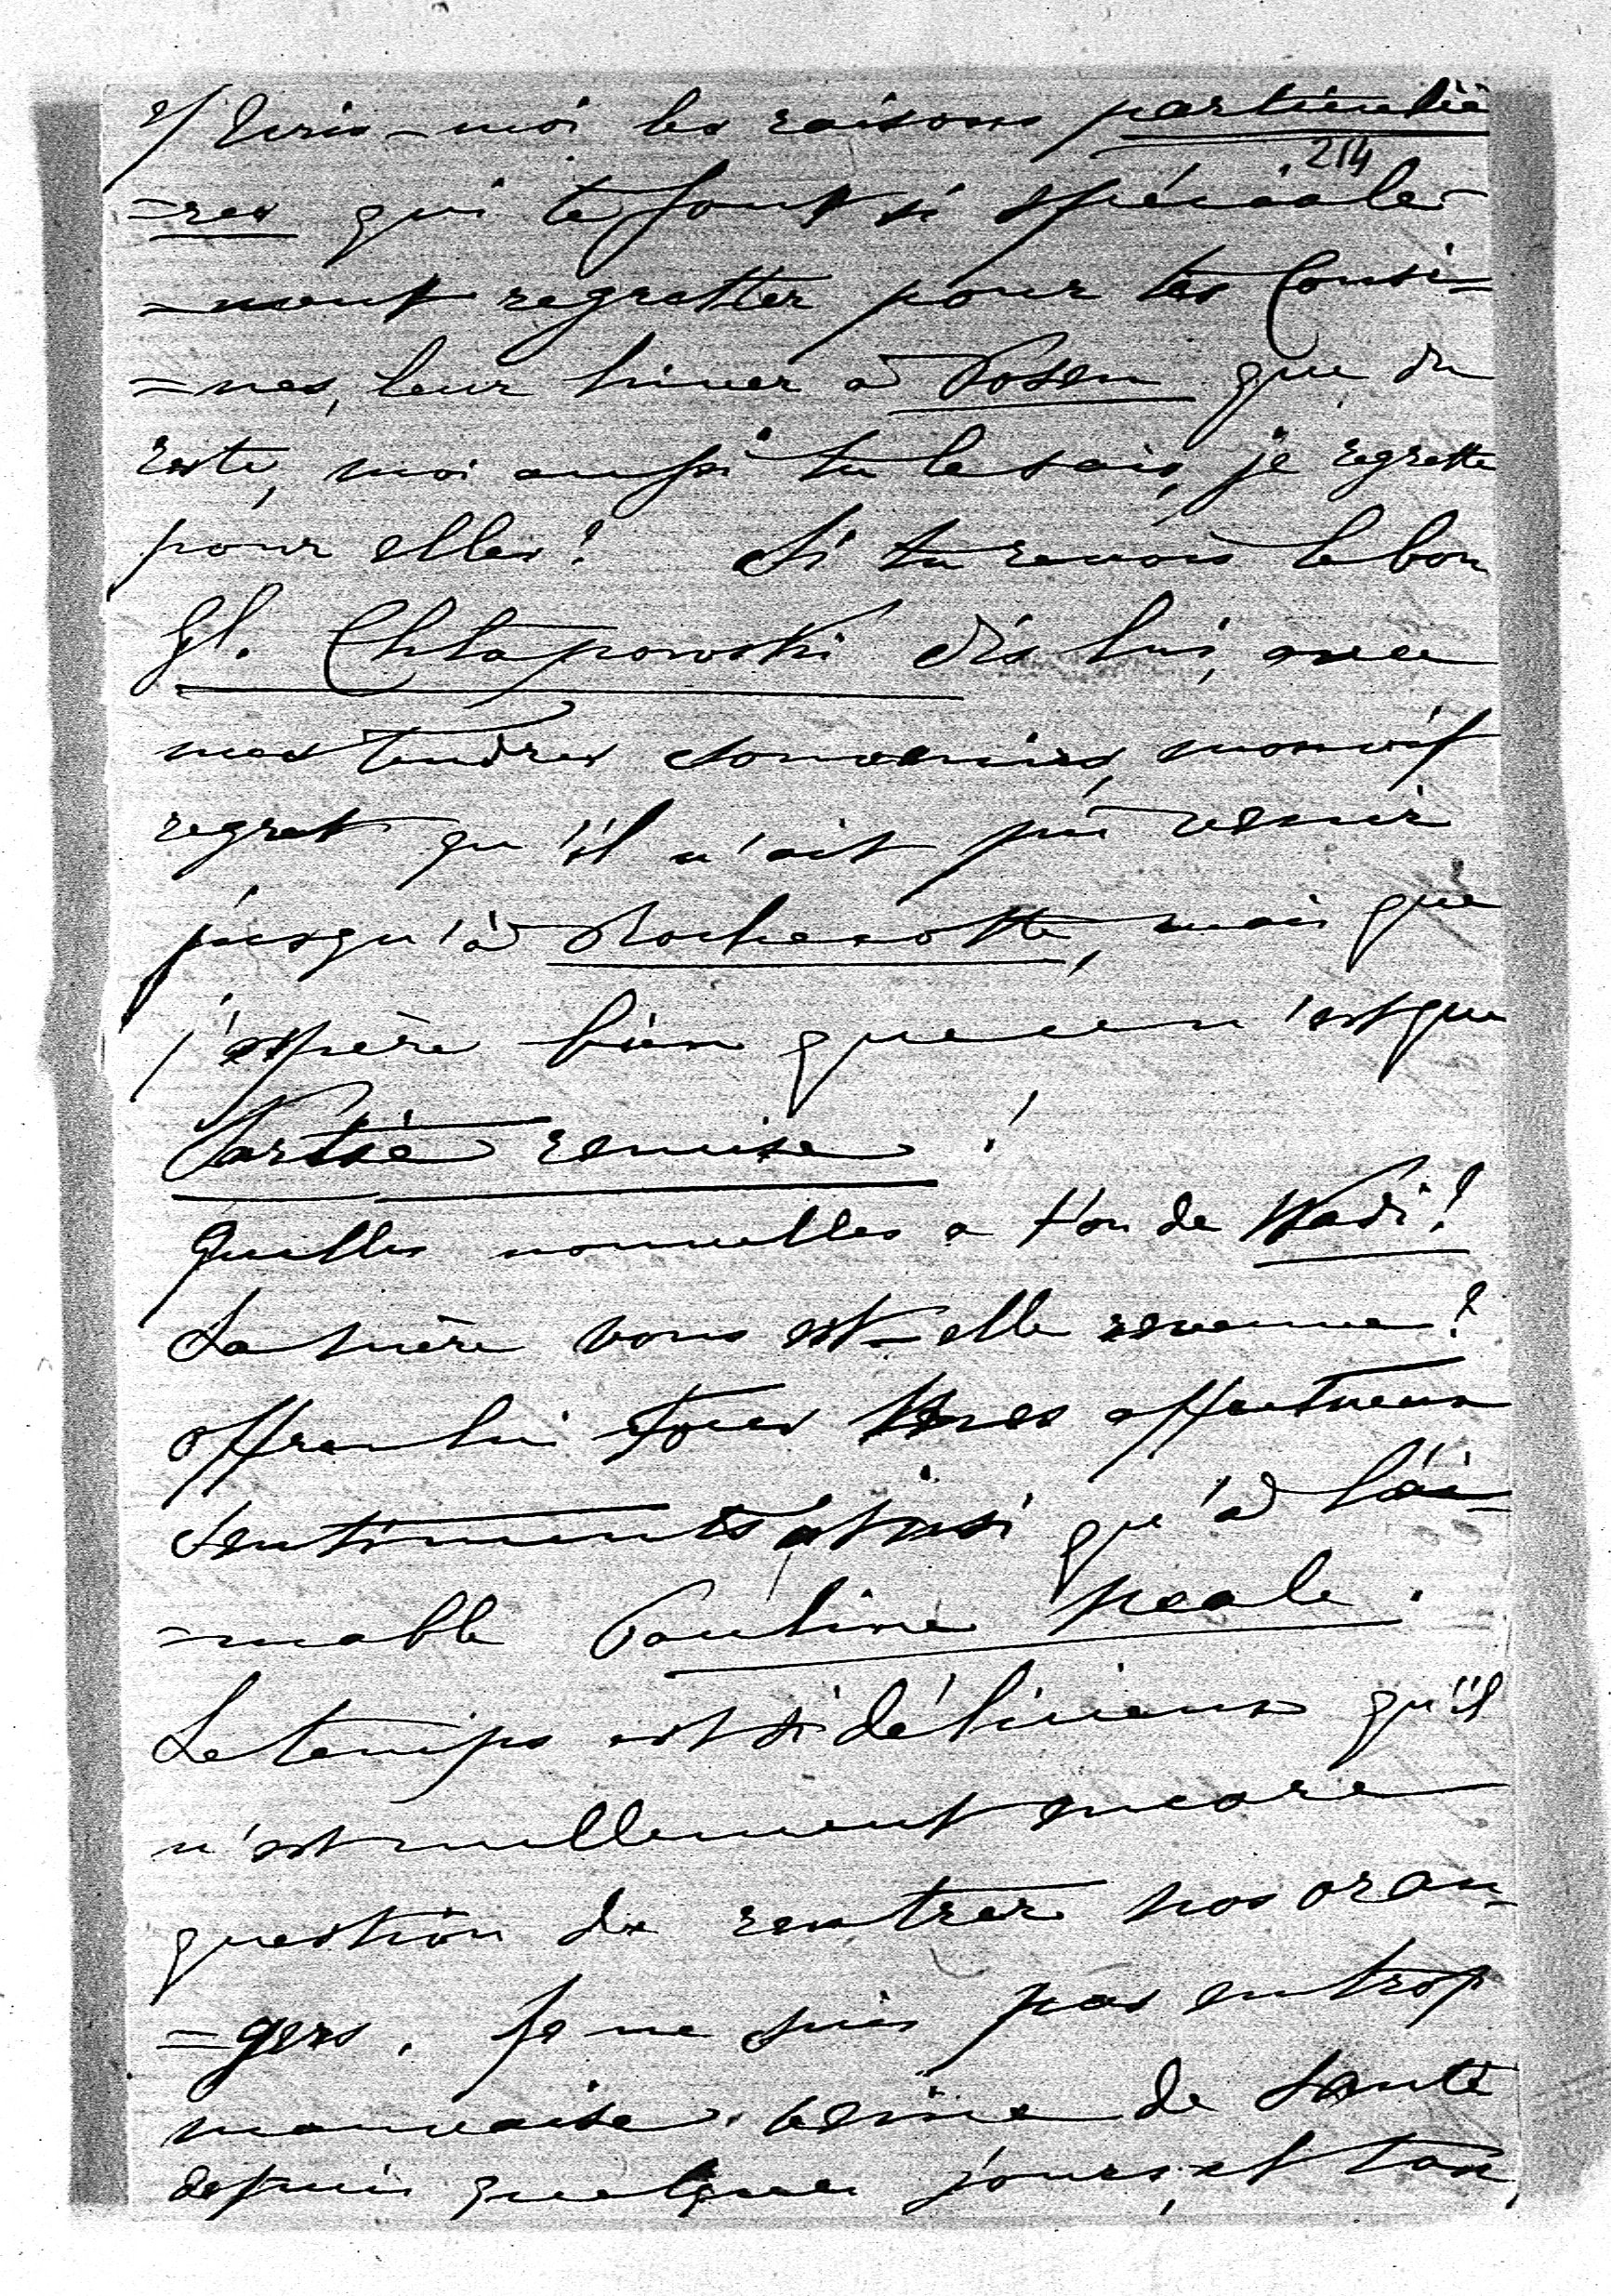 2/ Ecris-moi les raisons particuliè
214
=res qui te font si spéciale-
=ment regretter pour tes Cousi=
=nes, leur hiver à Posen que du
reste, moi aussi tu le sais, je regrette
pour elles? Si tu revois le bon
Gl. Chlapowski dis lui, avec
mes tendres souvenirs, mon vif
regret qu'il n'ait pu venir
jusqu'à Rochecotte, mais que
j'espère bien que ce n'est que
Partie remise!
Quelles nouvelles a t'on de Wadi?
Sa mère vous est-elle revenue?
offre lui tous mes affectueux
sentiments ainsi qu'à l'ai=
=mable Pauline Neale.
Le temps est si délicieux qu'il
n'est nullement encore
question de rentrer nos oran=
=gers. Je ne suis pas en trop
mauvaise veine de santé
depuis quelques jours, et ton